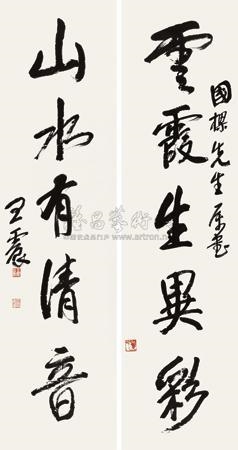 雲霞生異彩
國樑先生屬書
山水有清音
王震
www.artron.net